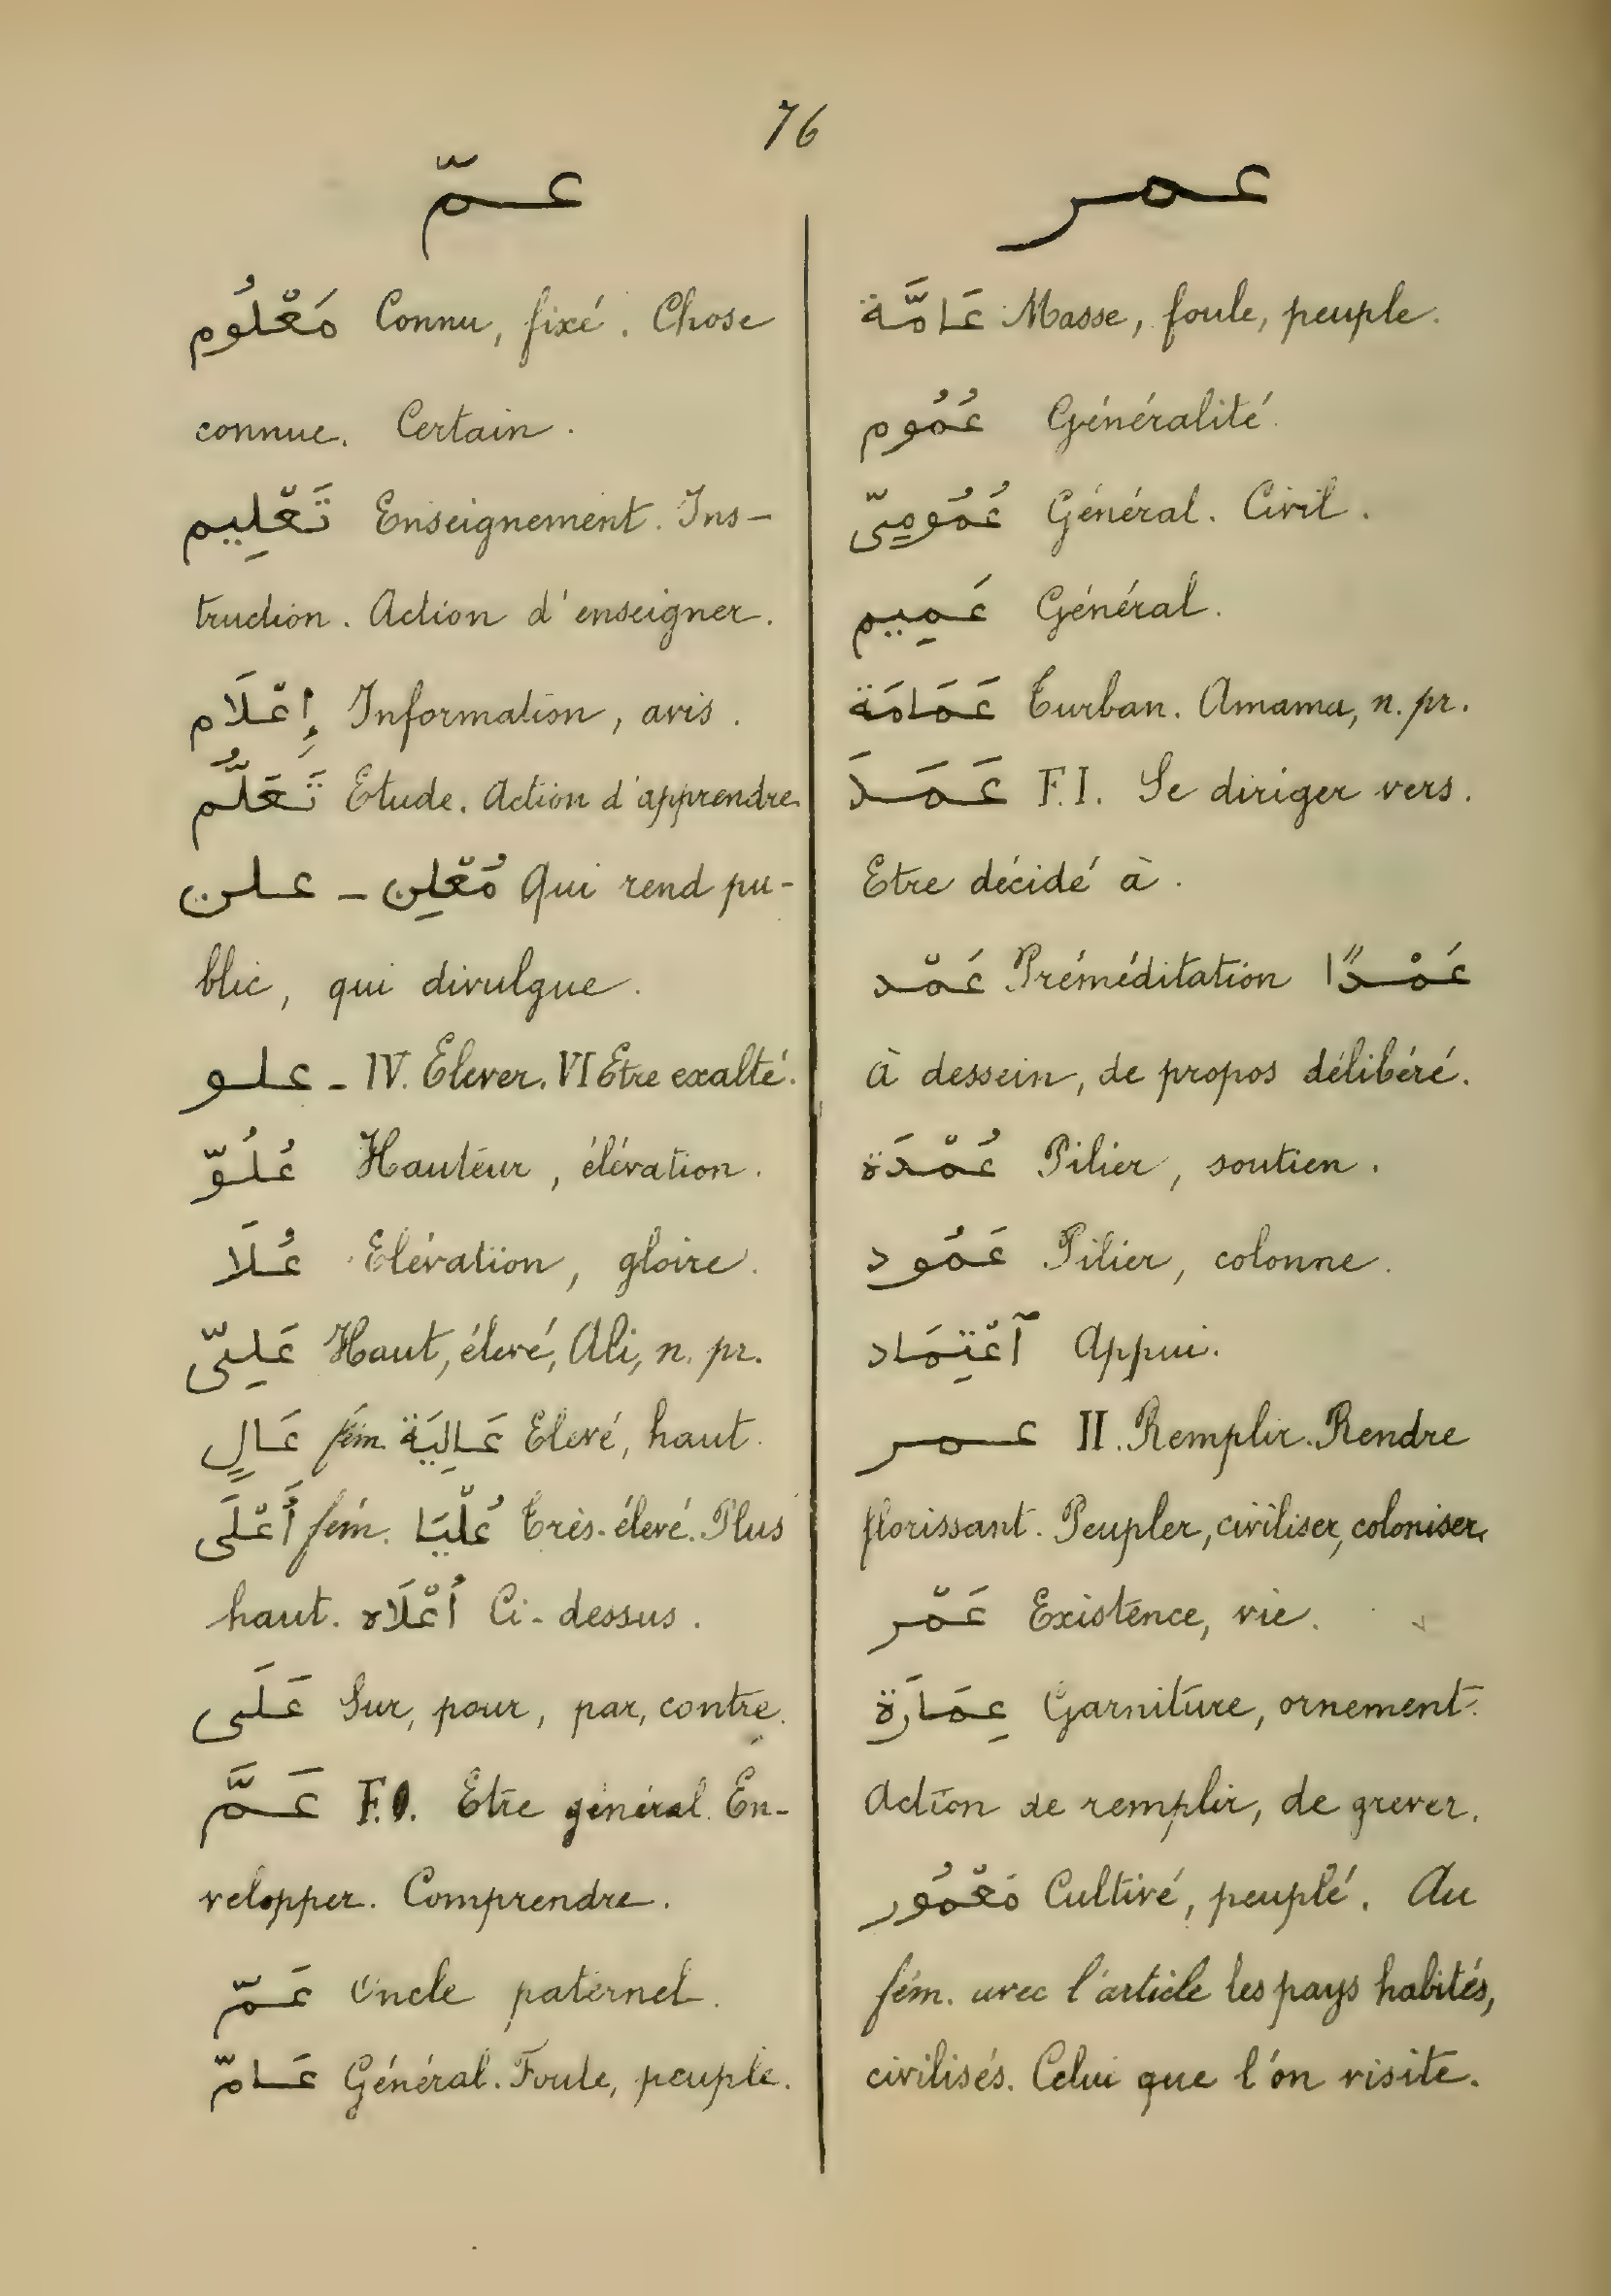 76
عمّ
مَعْلُوم Connu, fixé. Chose
connue. Certain.
تَعْلِيم Enseignement. Ins-
truction. Action d'enseigner.
إِعْلَام Information, avis.
تَعَلُّم Etude. Action d'apprendre.
علن - مُعْلِن Qui rend pu-
blic, qui divulgue.
علو - IV. Élever. VI Etre exalté.
عُلُوّ Hauteur, élévation.
عُلَا Elévation, gloire.
عَلِىّ Haut, élevé, Ali, n. pr.
عَالٍ fém. عَالِيَة Elevé, haut.
أَعْلَى fém. عُلْيَا Très-élevé. Plus
haut. أَعْلَاه Ci-dessus.
عَلَى Sur, pour, par, contre.
عَمَّ F.O. Etre général. En-
velopper. Comprendre.
عَمّ Oncle paternel.
عَامّ Général. Foule, peuple.
عمر
عَامَّة Masse, foule, peuple.
عُمُوم Généralité.
عُمُومِىّ Général. Civil.
عَمِيم Général.
عَمَامَة Turban. Amama, n. pr.
عَمَدَ F.I. Se diriger vers.
Etre décidé à.
عَمْد Préméditation عَمْدًا
à dessein, de propos délibéré.
عُمْدَة Pilier, soutien.
عَمُود Pilier, colonne.
آعْتِمَاد Appui.
عمر II. Remplir. Rendre
florissant. Peupler, civiliser, coloniser.
عَمْر Existence, vie.
عِمَارَة Garniture, ornement.
Action de remplir, de grever.
مَعْمُور Cultivé, peuplé. Au
fém. avec l'article les pays habités,
civilisés. Celui que l'on visite.